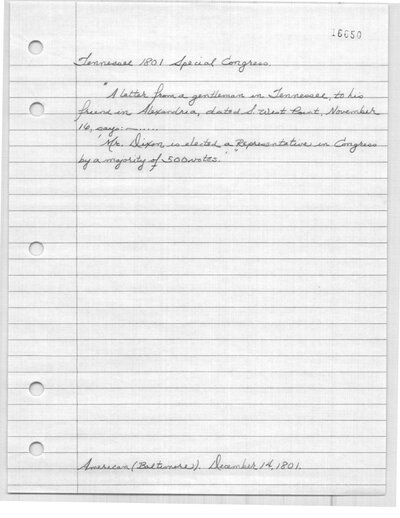 16650
Tennessee 1801 Special Congress.
"A letter from a gentleman in Tennessee, to his
friend in Alexandria, dated S. West Point, November
16, says: —......
'Mr. Dixon is elected a Representative in Congress
by a majority of 500 votes.' "
American (Baltimore). December 14, 1801.